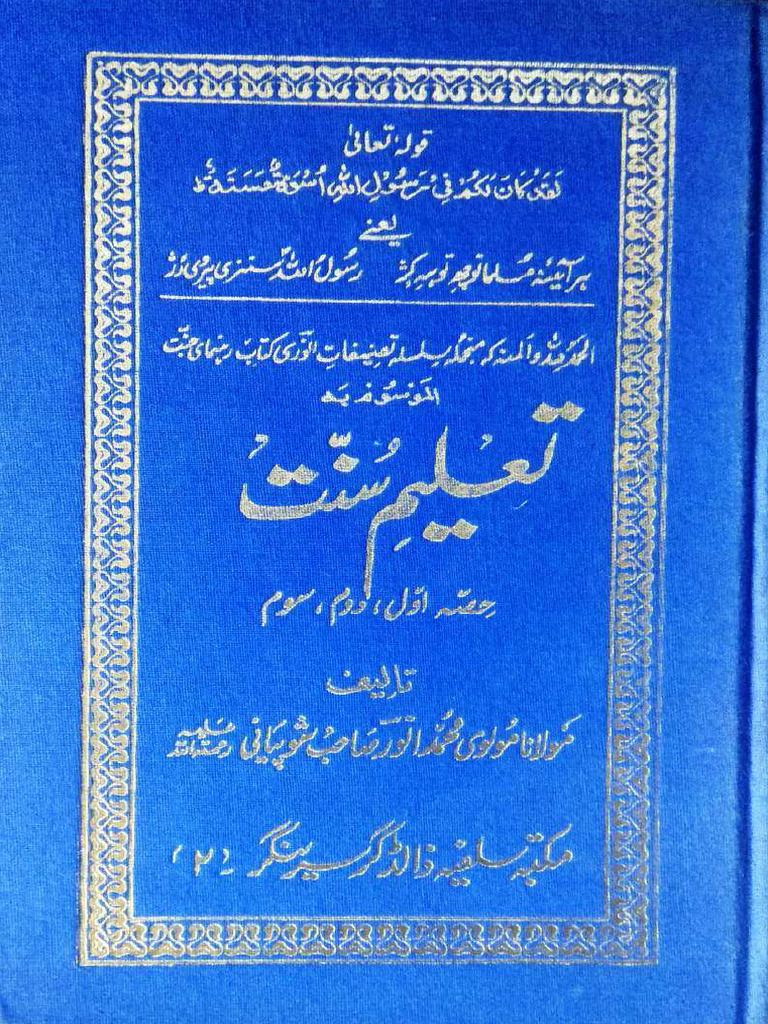 قولہ تعالیٰ
لَقَدْ كَانَ لَكُمْ فِيْ رَسُوْلِ اللّٰهِ اُسْوَةٌ حَسَنَةٌ ط
یعنے
ہر آئینہ مسلمانو چھِ توہیہ کِژ رسول اللہ سنزی پیروی کرُژ
الحمد للہ والمنہ کہ منجملہ سلسلہ تصنیفات انوری کتاب رہنمای جنت
الموسوم بہ
تعلیمِ سُنّت
حصہ اوّل، دوم، سوم
تالیف
مولانا مولوی محمد انور صاحب شوپیانی رحمۃ اللہ علیہ
مکتبہ سلفیہ ڈالڈگر سرینگر (۲)